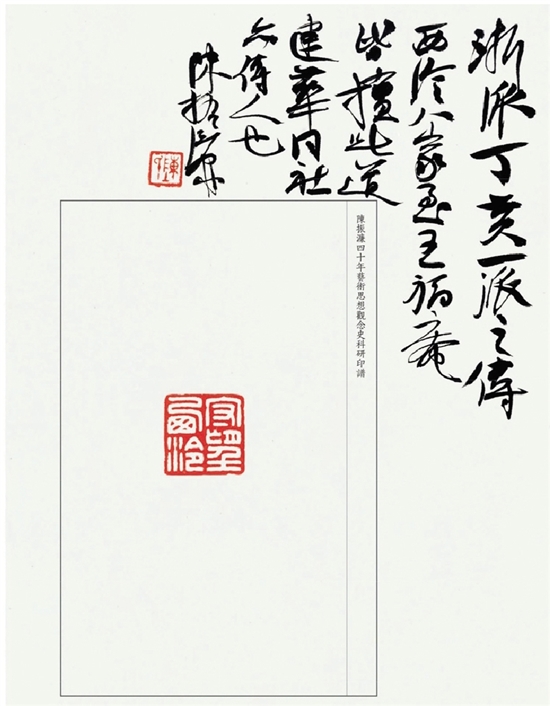 浙派丁黄一派之傳
西泠八家至王福庵
皆擅此道
建華同社
亦傳人也
陳振濂
陳振濂四十年藝術思想觀念史科研印譜
守望
西泠